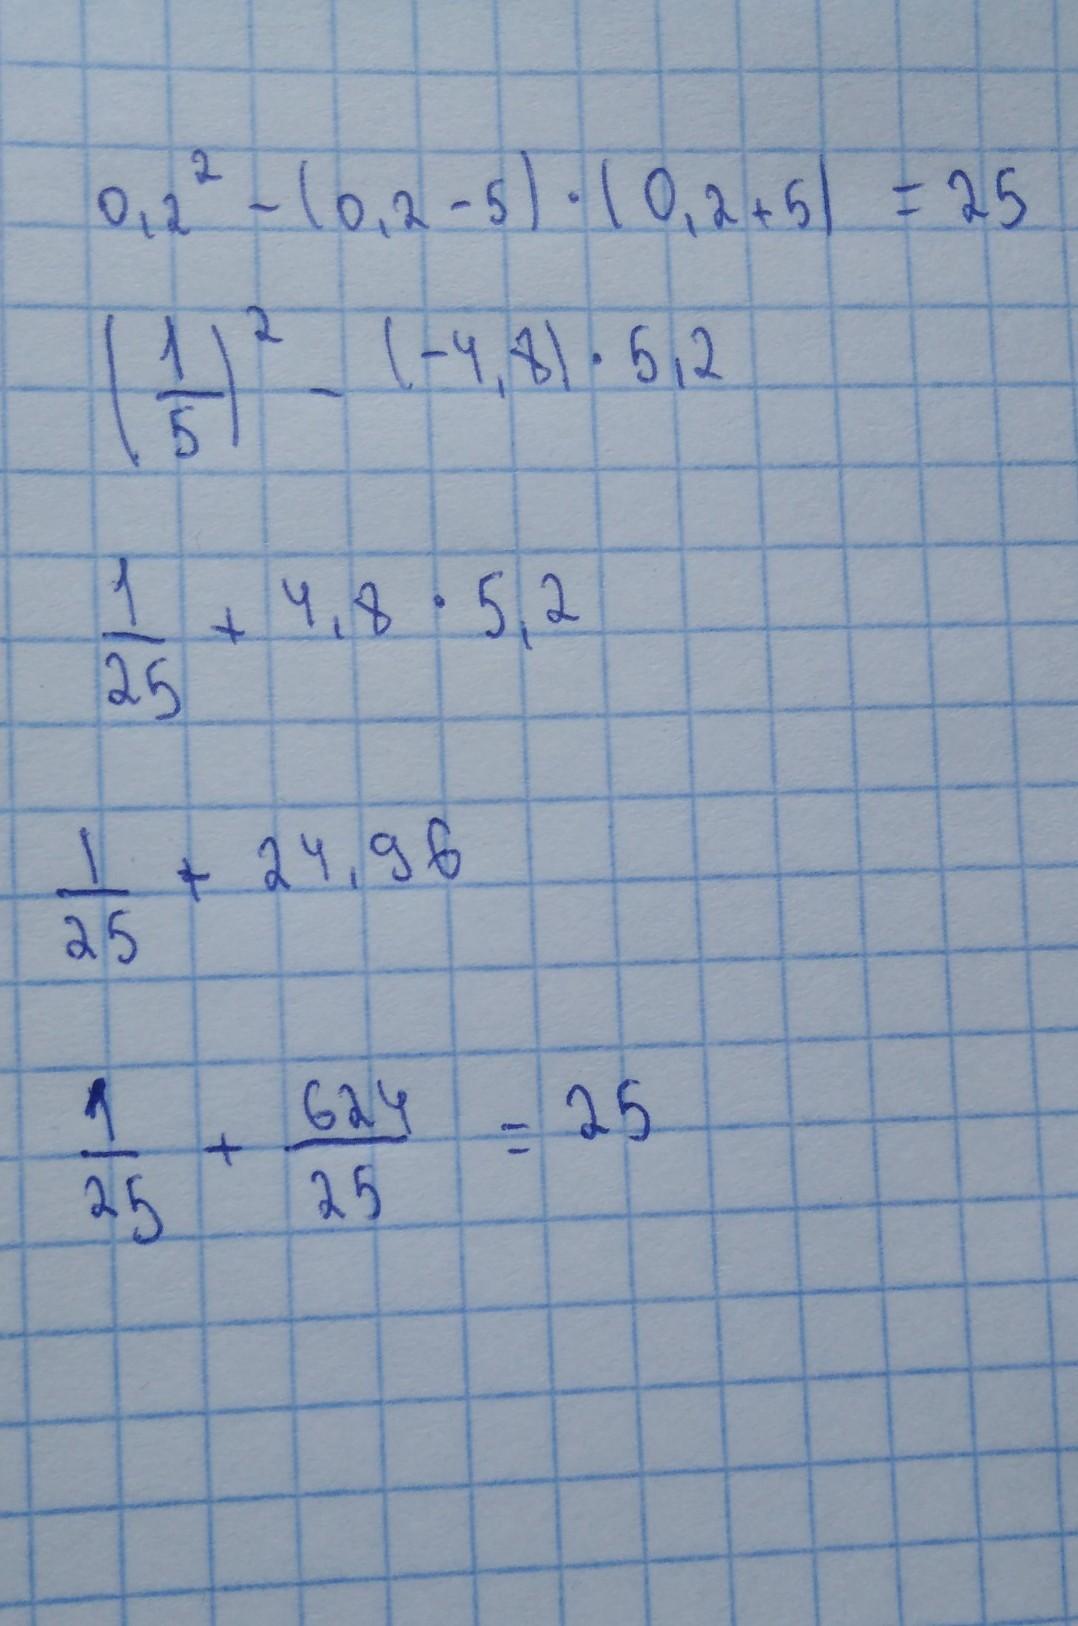 0,2² - (0,2 - 5) · (0,2 + 5) = 25
(1/5)² - (-4,8) · 5,2
1/25 + 4,8 · 5,2
1/25 + 24,96
1/25 + 624/25 = 25